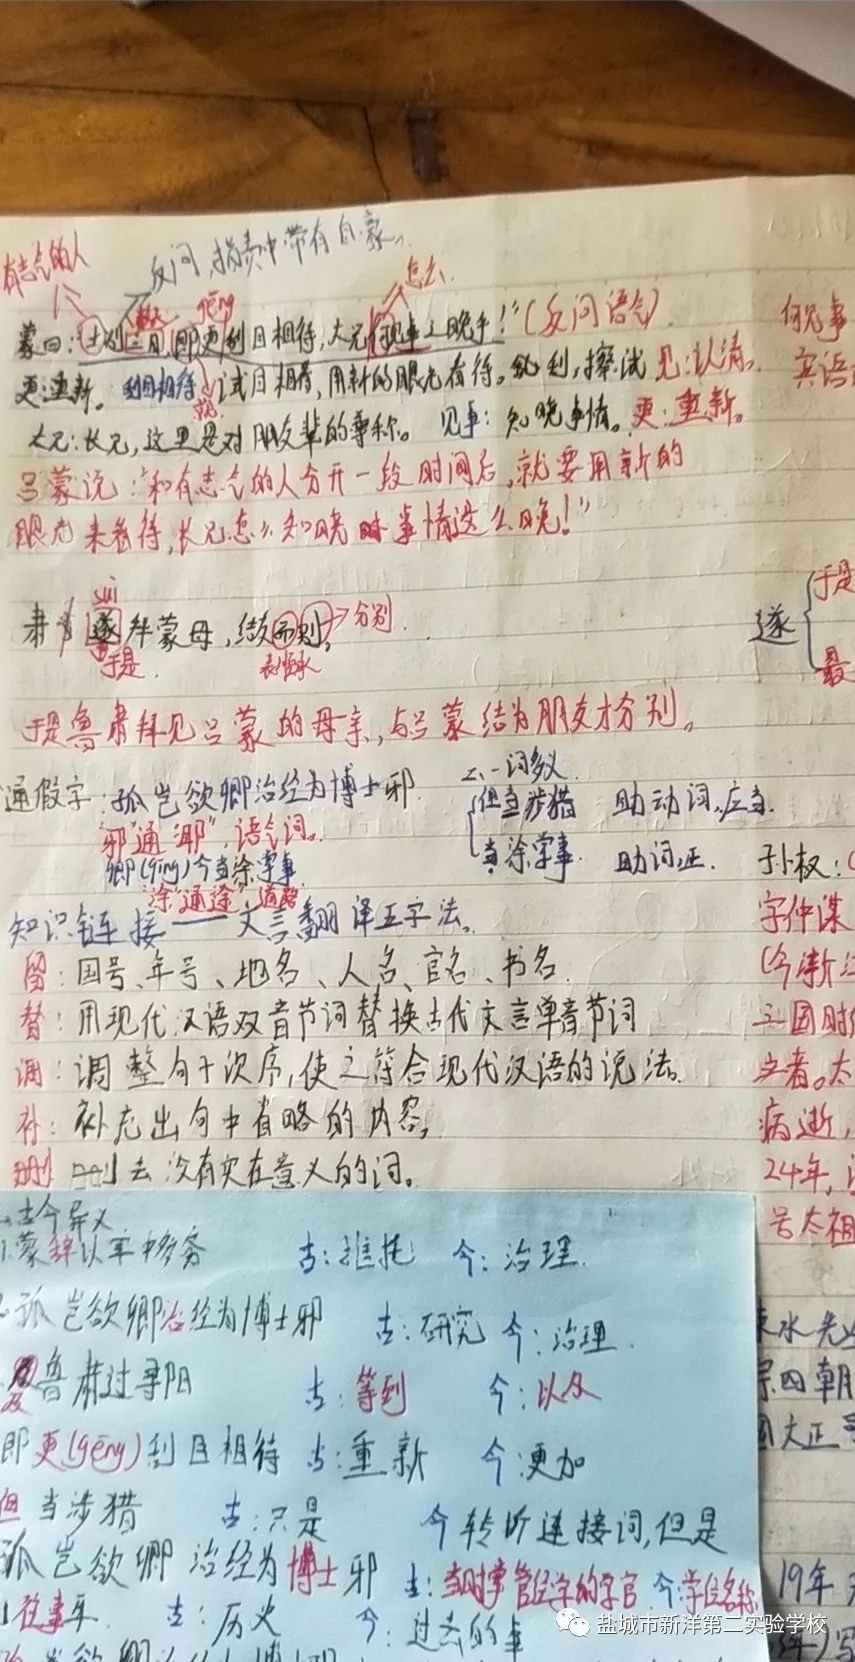 有志气的人
反问 指责中带有自豪。
怎么
gēng
蒙曰:"士别三日,即更刮目相待,大兄何见事之晚乎!"(反问语气)
何见事
更:重新。 刮目相待:拭目相看,用新的眼光看待。刮,擦拭 见:认清。
宾语
就
大兄:长兄,这里是对朋友辈的尊称。 见事:知晓事情。更:重新。
吕蒙说:"和有志气的人分开一段时间后,就要用新的
眼光来看待,长兄怎么知晓事情这么晚!"
suì
肃遂拜蒙母,结友而别。
分别
于是
表顺承
遂
于是
最
于是鲁肃拜见吕蒙的母亲,与吕蒙结为朋友才分别。
通假字:孤岂欲卿治经为博士邪
"邪"通"耶",语气词。
卿(qīng)今当涂掌事
"涂"通"途" 道路
二、一词多义
但当涉猎 助动词,应当
当涂掌事 助词,正
孙权:
字仲谋
知识链接——文言翻译五字法。
留:国号、年号、地名、人名、官名、书名
(今浙江
替:用现代汉语双音节词替换古代文言单音节词
三国时
调:调整句子次序,使之符合现代汉语的说法。
立者。太
补:补充出句中省略的内容。
病逝,
删 删去没有实在意义的词。
24年,
号太祖
古今异义
1.蒙辞以军中多务 古:推托 今:治理
孤岂欲卿治经为博士邪 古:研究 今:治理
及鲁肃过寻阳 古:等到 今:以及
即更(gēng)刮目相待 古:重新 今:更加
但当涉猎 古:只是 今转折连接词,但是
孤岂欲卿治经为博士邪 古:当时掌管经学的学官 今:学位名称
见往事耳 古:历史 今:过去的事
涑水先
宗四朝
文正
19年
写
盐城市新洋第二实验学校